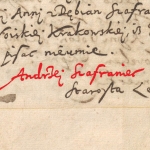 Anny z Dębian Szafra
Krakowskiej
pisac nieumie.
Andrzej Szafraniec
Starosta Le